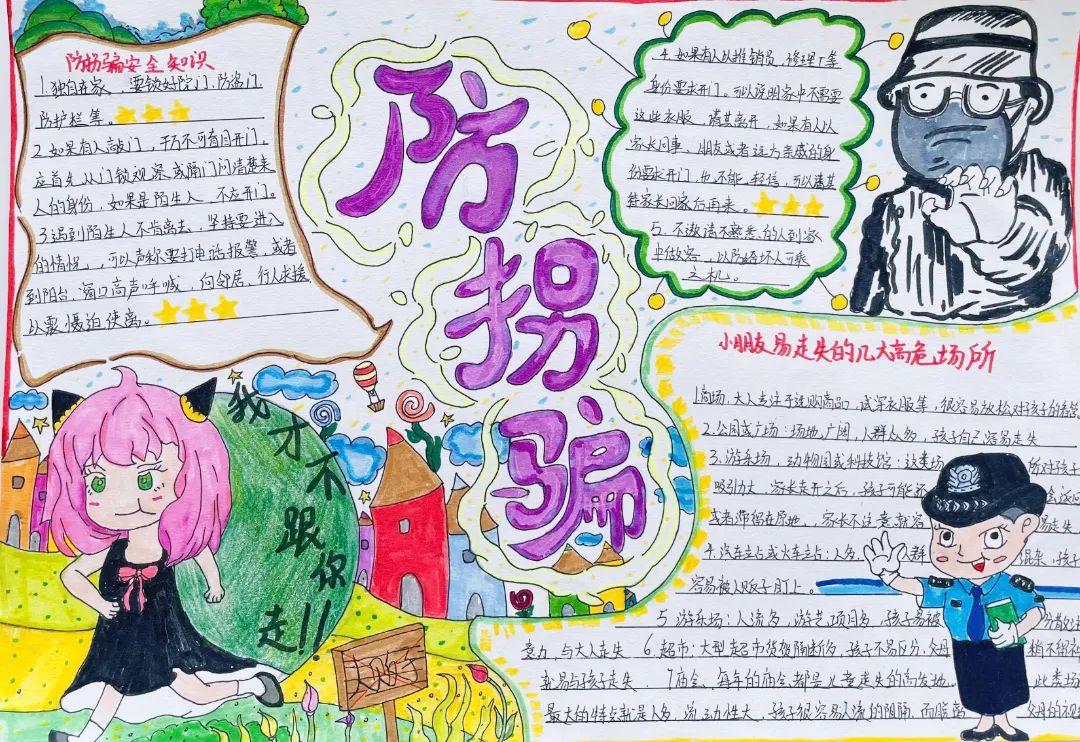 防拐骗安全知识
1.独自在家，要锁好院门、防盗门、
防护栏等。
2.如果有人敲门，千万不可盲目开门，
应首先从门镜观察或隔门问清楚来
人的身份，如果是陌生人，不应开门。
3.遇到陌生人不肯离去，坚持要进入
的情况，可以声称要打电话报警，或者
到阳台、窗口高声呼喊，向邻居、行人求援，
以震慑迫使离。
防
拐
骗
4.如果有人以推销员、修理工等
身份要求开门。可以说明家中不需要
这些衣服，请其离开，如果有人以
家长同事、朋友或者远方亲戚的身
份要求开门，也不能轻信，可以请其
待家长回家后再来。
5.不邀请不熟悉的人到家
中做客，以防给坏人可乘
之机。
我才不跟你走!!
小朋友易走失的几大高危场所
1.商场：大人专注于选购商品，试穿衣服等，很容易放松对孩子的看管
2.公园或广场：场地广阔，人群众多，孩子自己容易走失
3.游乐场，动物园或科技馆：这类场 所对孩子
吸引力大，家长走开之后，孩子可能还
或者滞留在原地，家长不注意就容 易走失
4.汽车站或火车站：人多，人群 混杂，孩子
容易被人贩子盯上。
5.游乐场：人流多，游艺项目多，孩子易被 分散注
意力，与大人走失 6.超市：大型超市货架隔断多，孩子不易区分， 稍不留神
就易与孩子走失。 7.庙会：每年的庙会都是儿童走失的高发地。 此类场
最大的特点就是人多，流动性大，孩子很容易人流的阻隔，而脱离 父母的视